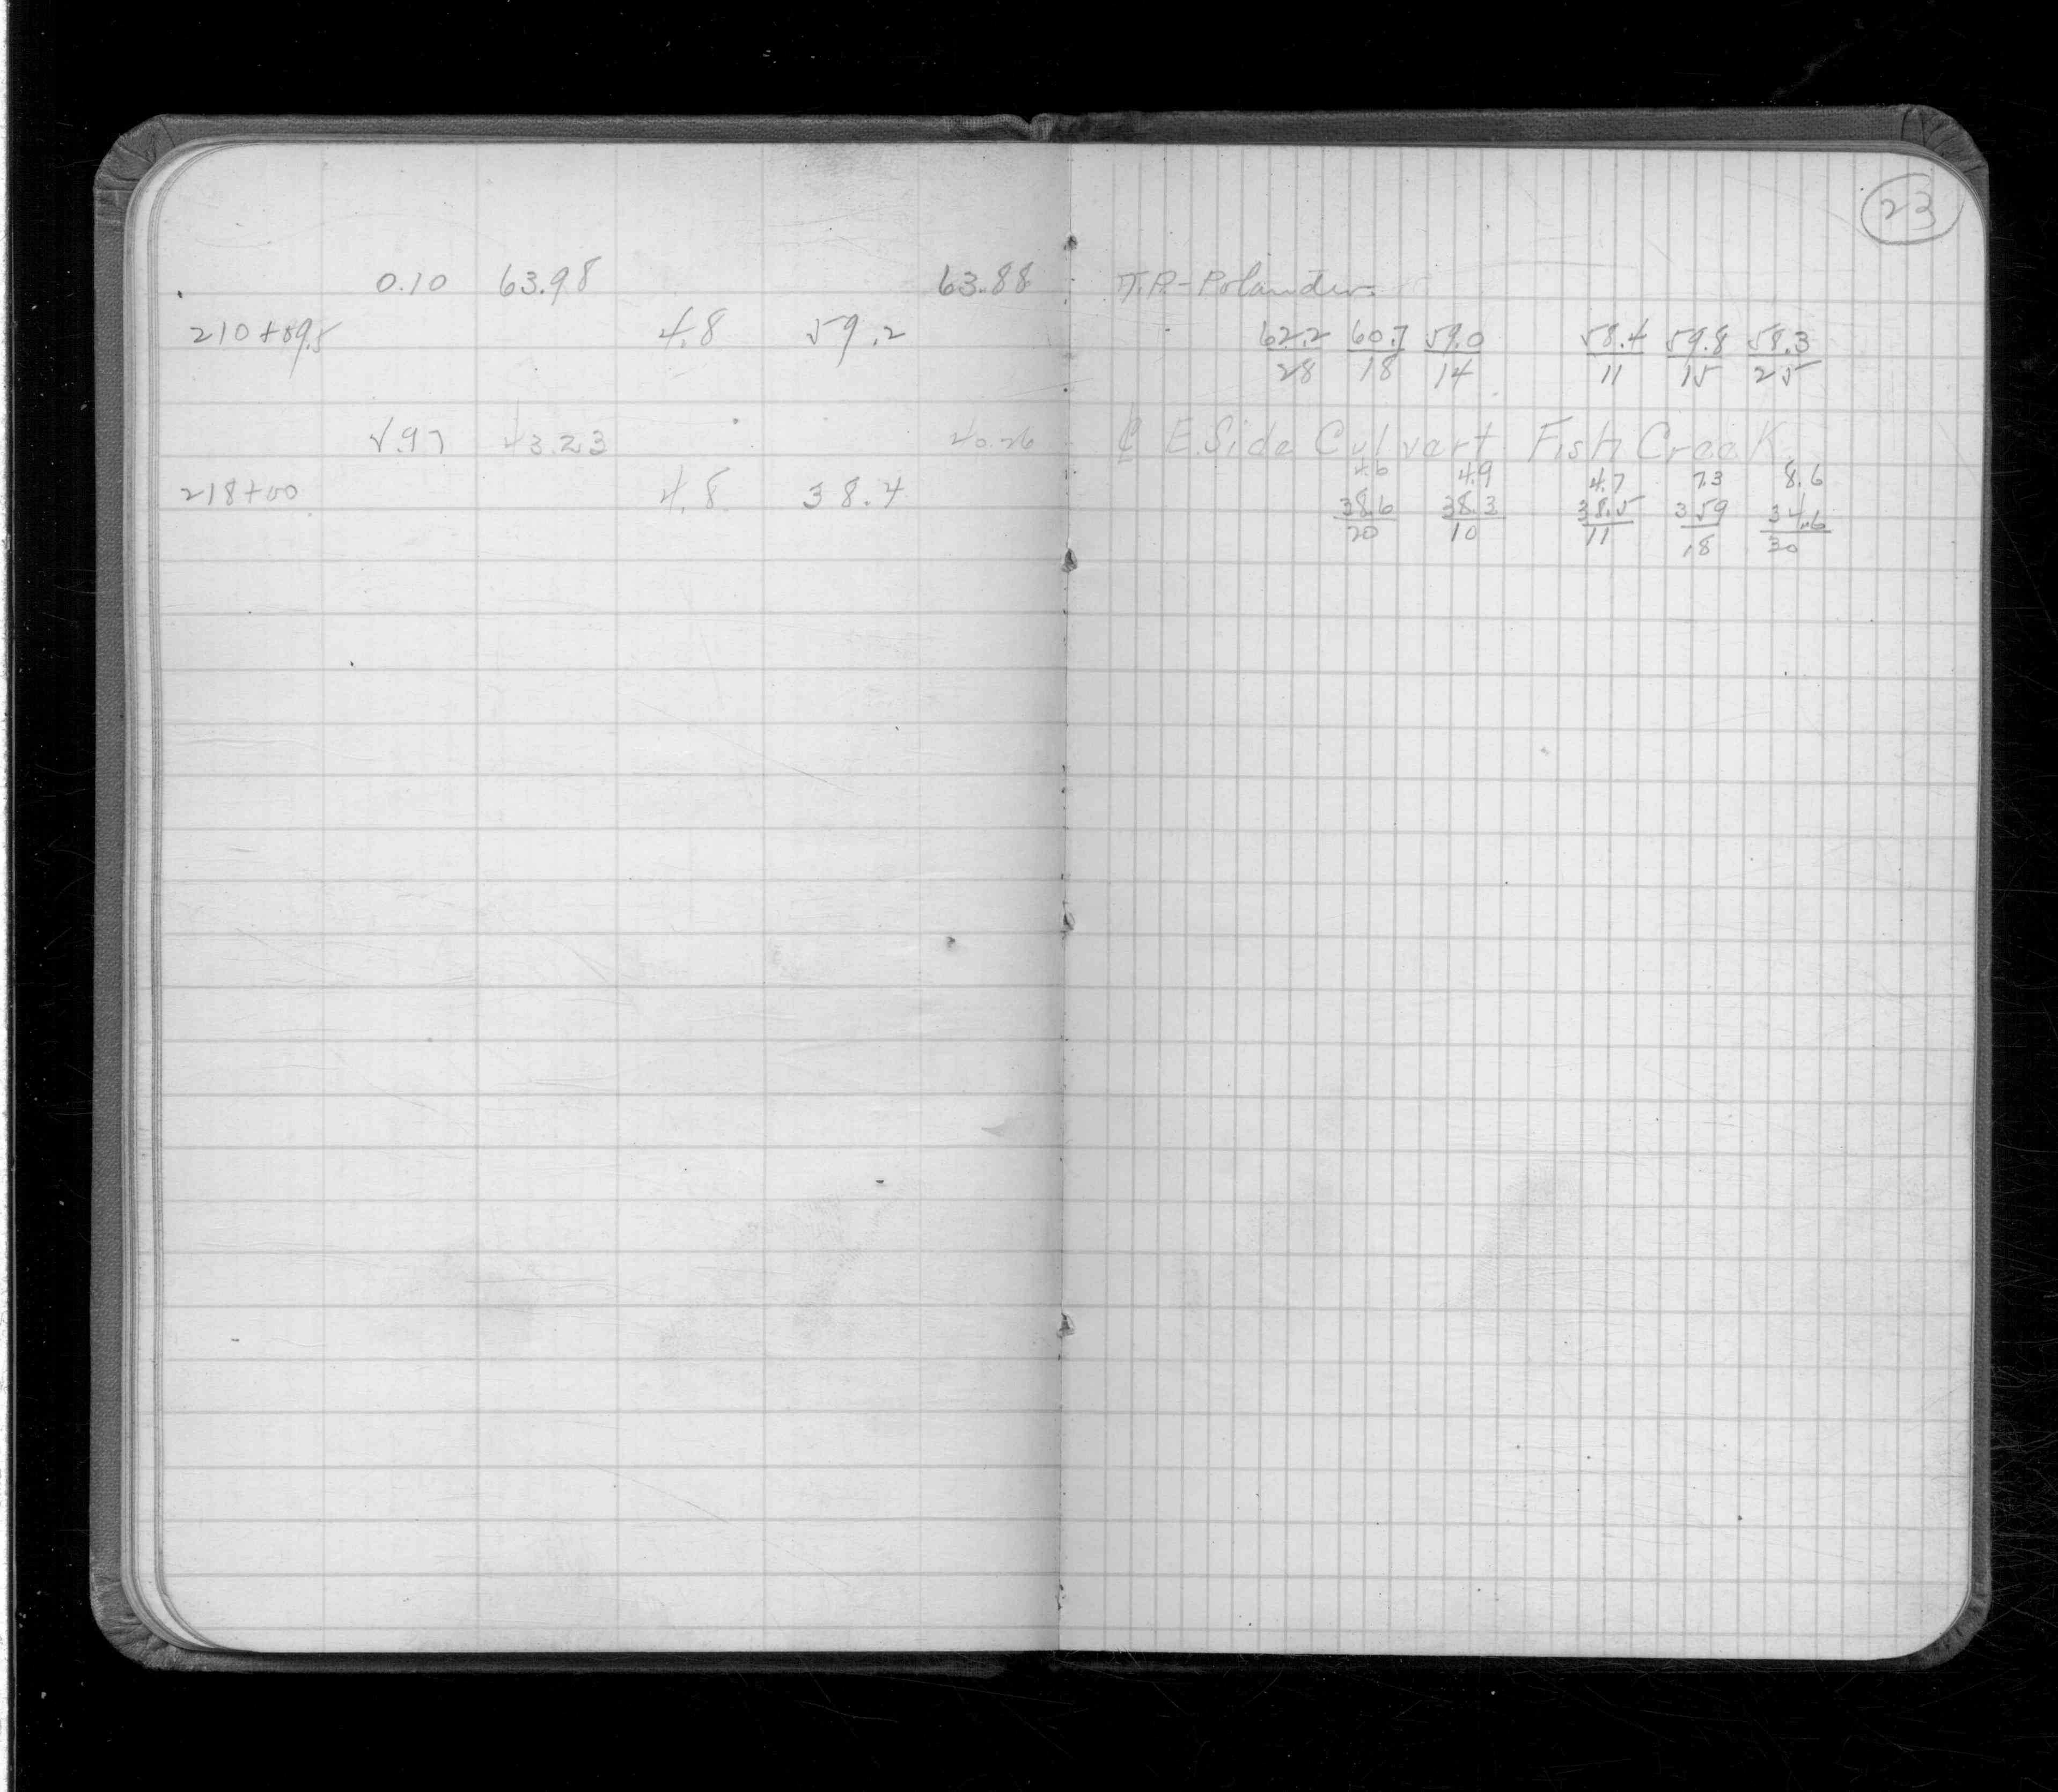 23
0.10 63.98 63.88 T.P.-Polander.
210+59.5 4.8 59.2 62.2 60.7 59.0 58.4 59.8 58.3
28 18 14 11 15 25
5.97 43.23 40.26 ℄ E. Side Culvert Fish Creek
4.6 4.9 4.7 7.3 8.6
218+00 4.8 38.4 38.6 38.3 38.5 35.9 34.6
20 10 11 18 30